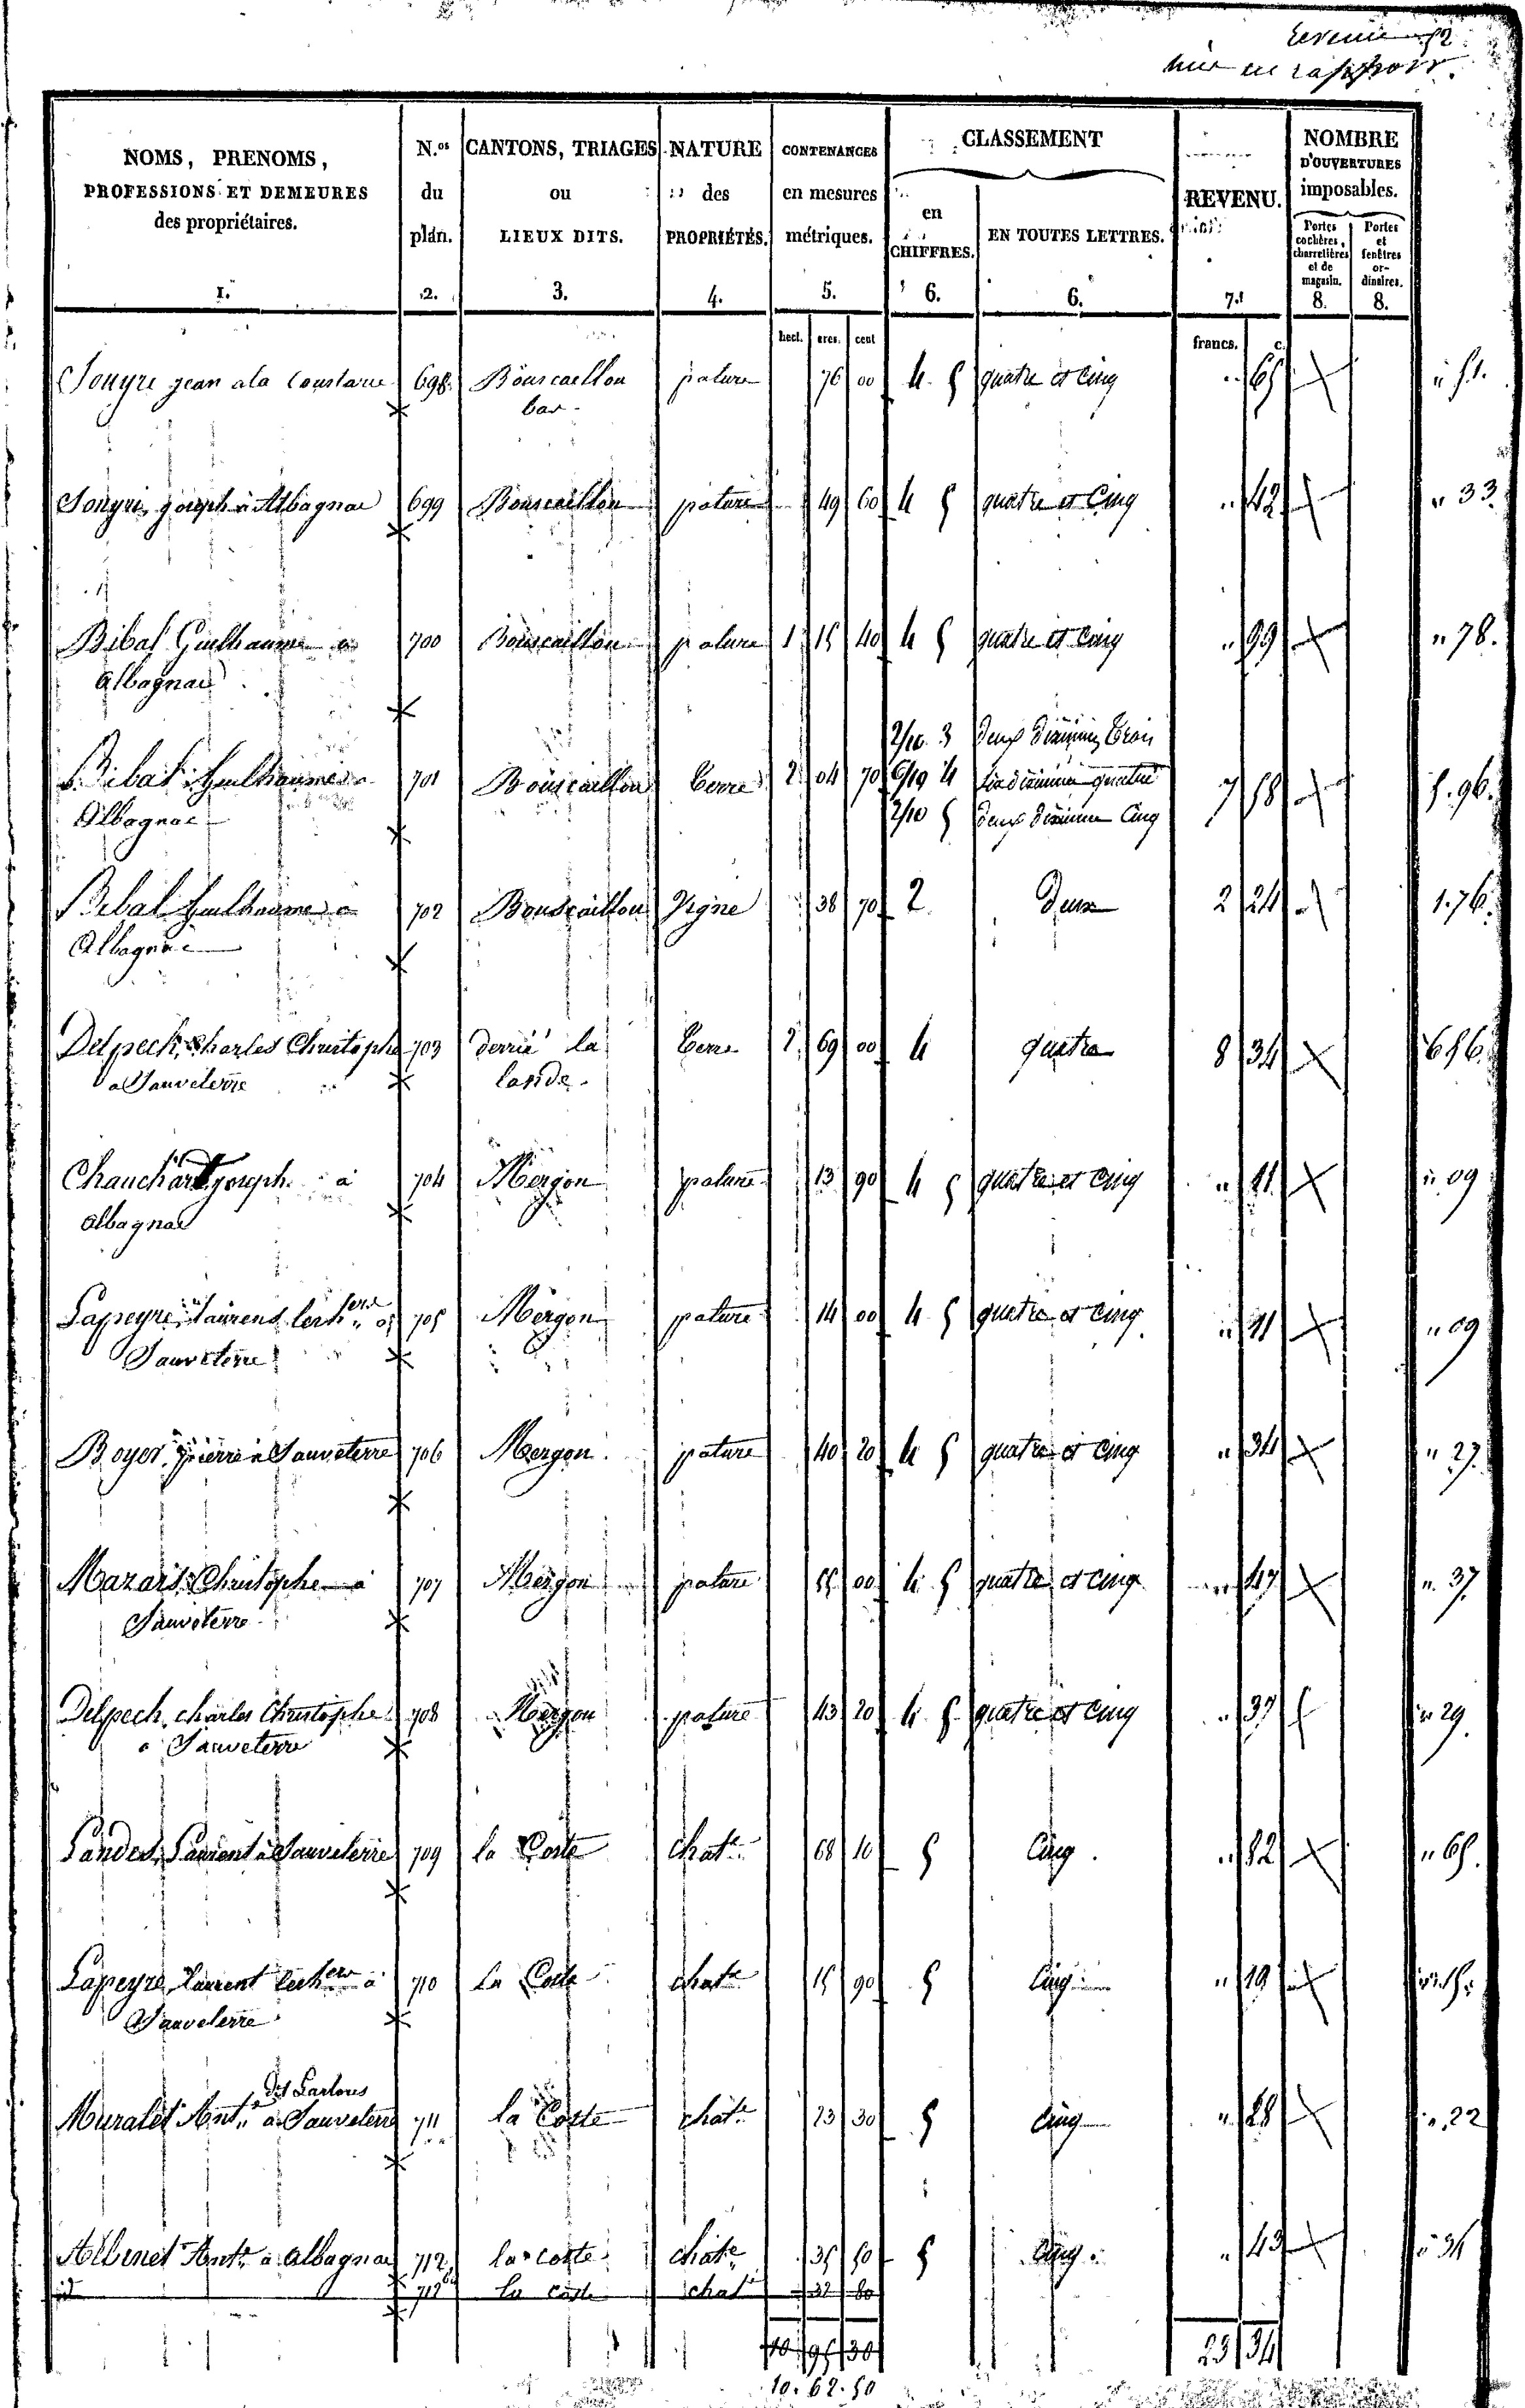 revenu
mis en rapport.
NOMS, PRENOMS, PROFESSIONS ET DEMEURES des propriétaires. 1.
N.os du plan. 2.
CANTONS, TRIAGES ou LIEUX DITS. 3.
NATURE des PROPRIÉTÉS. 4.
CONTENANCES en mesures métriques. 5.
CLASSEMENT
en CHIFFRES. 6.
EN TOUTES LETTRES. 6.
REVENU. 7.
NOMBRE D'OUVERTURES imposables.
Portes cochères, charretières et de magasin. 8.
Portes et fenêtres ordinaires. 8.
hect. ares. cent
francs. c.
Souyri jean a la 698. Bouscaillou pature 76 00 4. 5 quatre et Cinq " 65 " 51.
bas
Souyri, joseph à Albagnac 699 Bouscaillou pature 49 60 4 5 quatre et Cinq " 42 " 33.
Bibal Guilhaume à 700 Bouscaillou pature 1 15 40 4 5 quatre et Cinq " 99 " 78.
Albagnac
2/10. 3 deux dixièmes trois
Bibal Guilhaume à 701 Bouscaillou terre 2 04 70 6/10 4 six dixième quatre 7 58 5.96.
Albagnac 2/10 5 deux dixième Cinq
Bibal Guilhaume à 702 Bouscaillou Vigne 38 70 2. Deux 2 24 1.76.
Albagnac
Delpech, Charles Christophe 703 derrié la terre 2 69 00 4 quatre 8 34 6 56.
a Sauveterre lande.
Chauchard joseph à 704 Mergon pature 13 90 4 5 quatre et Cinq " 11 " 09
albagnac
Lapeyre, Laurens à 705 Mergon pature 14 00 4. 5 quatre et Cinq " 11 " 09
Sauveterre
Boyer, pierre à Sauveterre 706 Mergon. pature 40 20 4 5 quatre et Cinq " 34 " 27.
Mazars Christophe à 707 Mergon pature 55 00 4. 5 quatre et Cinq " 47 ". 37
Sauveterre
Delpech, charles Christophe 708 Mergon pature 43 20 4. 5. quatre et Cinq " 37 " 29.
a Sauveterre
Landes, Laurent à Sauveterre 709 la Coste chate 68 10 5 Cinq. " 82 " 65.
Lapeyre, Laurent à 710 La Coste chate 15 90 5 Cinq " 19 " 15.
Sauveterre
dit
Muratet Ant.e à Sauveterre 711 la Coste chate 23 30 5 Cinq " 28 " 22
Albinet Ant.e à albagnac 712 la coste chate 35 50 5 Cinq " 43 " 34
id 712 bis la coste chate 32 80
10 95 30 23 34
10. 62. 50